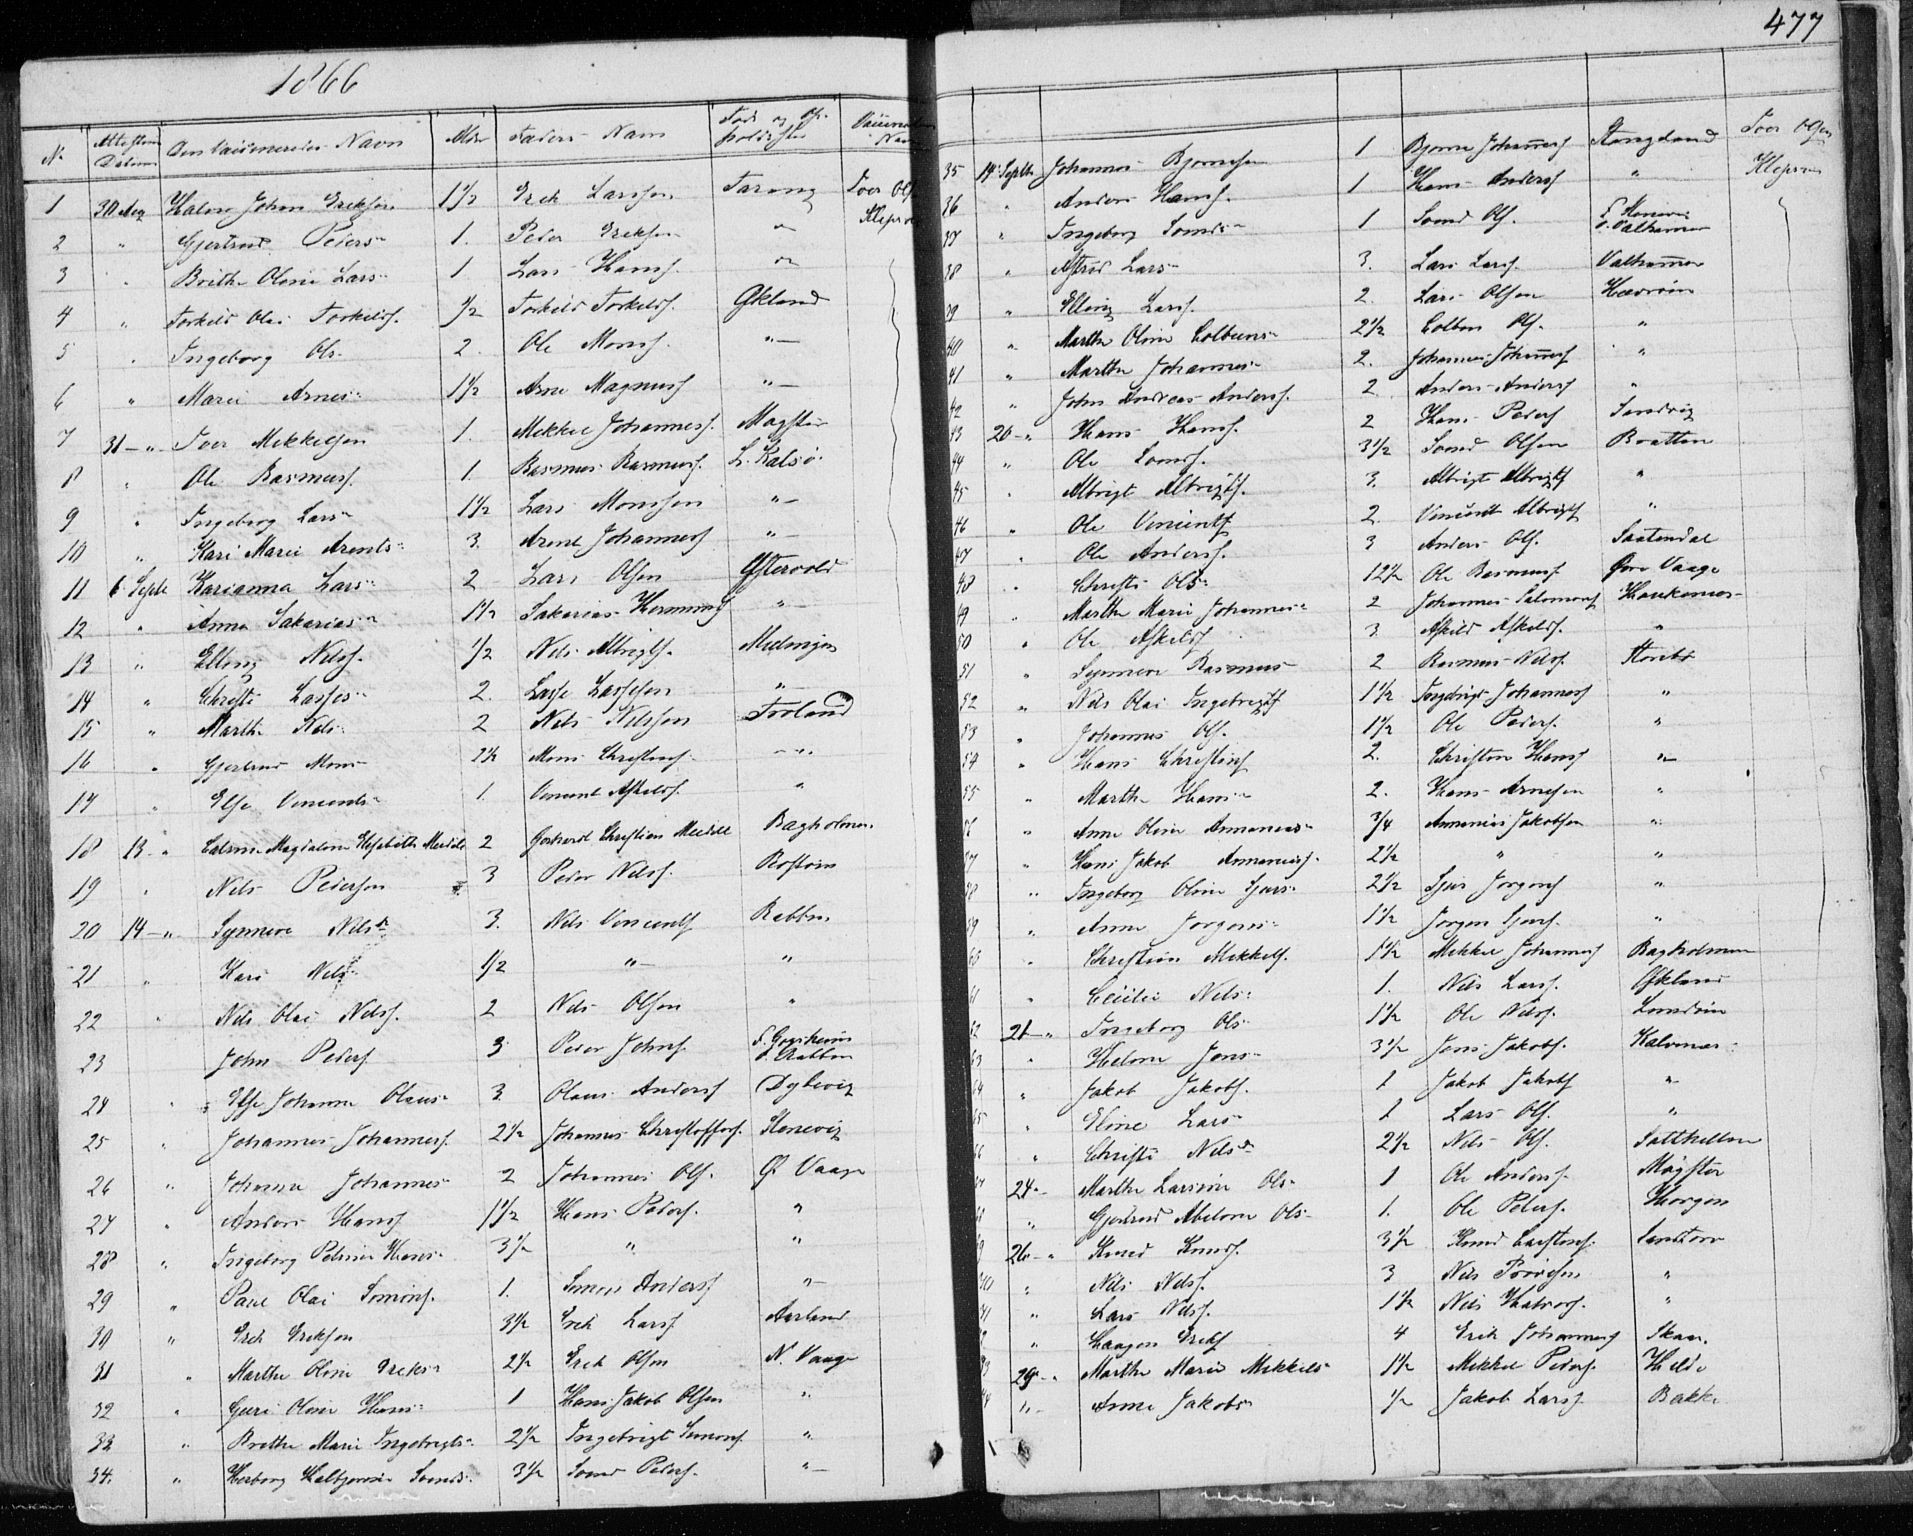 1866
N. Attestens Datum Den Vaccineredes Navn Alder Faders Navn Føde og Opholdssted Vaccinat Navn
1 30 Aug Halvor Johan Eriksen 1 1/2 Erik Larssen Tarang Tver Ols
Klepsv
2 " Gjertrud Peders- 1. Peder Eriksen "
3 " Brithe Oline Lars- 1 Lars Hans. "
4 " Torkild Olai Torkilds. 1/2 Torkild Torkilds. Økland
5 " Ingeborg Ols- 2. Ole Mons. "-
6 " Mari Arnes- 1 1/2 Arne Magnus "-
7 31-" Iver Mikkelsen 1. Mikkel Johannes. Møgster
8 " Ole Rasmus. 1. Rasmus Rasmus. L. Kalsø.
9 " Ingeborg Lars- 1 1/2 Lars Monsen "-
10 " Kari Marie Arents- 3. Arent Johannes "-
11 6 Septb Karianna Lars- 2 Lars Olsen Østervold
12 " Anna Sakarias- 1 1/2 Sakarias Hermuns "-
13 " Elling Nils. 1/2 Nils Albrigts. Melingen
14 " Christi Lasses- 2. Lasse Lassesen "-
15 " Marthe Nils- 2 Nils Nilssen Froland
16 " Gjertrud Mons- 2 1/2 Mons Christens. "
17 " Else Vincents- 1. Vincent Askilds "
18 13-" Magdalene Elisabeth 2 Gerhard Christian Bagholmen
19 " Nils Pedersen 3 Peder Nils. Rostøen
20 14-" Synneve Nilsd. 3. Nils Vincents Rabben
21 " Kari Nils- 1/2 "- "
22 " Nils Olai Nils. 2 Nils Olsen "
23 " John Peders 3 Peder Johns. o. Rabben
24 " Else Johanne Olaus- 3 Olaus Anders Dybevig
25 " Johannes Johannes. 2 1/2 Johannes Christoffers. Stenevig
26 " Johanne Johannes- 2 Johannes Ols. Ø Vaage
27 " Anders Hans 1 1/2 Hans Peders. "
28 " Ingeborg Petrine Hans- 3 1/2 " "
29 " Paul Olai Simons. 1. Simon Anders "-
30 " Erik Eriksen 3 1/2 Erik Lars Aarland
31 " Marthe Oline Eriks- 2 1/2 Erik Olsen N. Vaage
32 " Guri Oline Hans- 1 Hans Jakob Olsen "
33 " Brethe Marie Ingebrigts- 2 1/2 Ingebrigt Simons. "
34. " Herborg Sjurds- 3 1/2 Peders. "-
477
35 14 Septbr Johannes Bjørnesen 1 Bjørne Johannes Stangeland Tver Olsen
36 " Anders Hans. 1 Hans Anders " Klepsv
37 " Ingeborg 1 Ols. o. Valhammer
38 " Astrid Lars- 3. Lars Lars. Valhammer
39 " Elling Lars. 2. Lars Olsen Hevrøen
40 " Marthe Oline Colbens- 2 1/2 Colben Ols. "
41 " Marthe Johannes- 2. Johannes Johannes "
42 " John Andreas Anders. 2. Anders Anders "
43 20-" Hans Hans. 2 Hans Peders Sandvig
44 " Ole 3 1/2 Olsen Bratten
45 " Albrigt Albrigts. 3. Albrigt Albrigts "
46 " Ole Vincents 2. Vincent Albrigts "
47 " Ole Anders. 3 Anders Ols. Saatendal
48 " Christi Ols- 12 1/2 Ole Rasmus Øvre Vaage
49 " Marthe Marie Johannes- 2 Johannes Salomons Haukenes
50 " Ole Askilds 3 Askild Askilds. "
51 " Synneve Rasmus- 2 Rasmus Nils. Storebø
52 " Nils Olai Ingebrigts 1 1/2 Ingebrigt Johannes "
53 " Johannes Ols. 1 1/2 Ole Peders. "
54 " Hans Christens 2. Christen Hans "-
55 " Marthe Hans- 2. Hans Arnesen "
56 " Anne Oline Annanias- 3/4 Annanias Jakobsen "
57 " Hans Jakob Annanias. 2 1/2 " "
58 " Ingeborg Oline Sjurs- 2 1/2 Sjur Jørgens "
59 " Anne Jørgens- 1 1/2 Jørgen Sjurs. "
60 " Christian Mikkels. 1 1/2 Mikkel Johannes Bagholmen
61 " Cecilie Nils- 1. Nils Lars. Økland
62 21-" Ingeborg Ols- 1 1/2 Ole Nils.
63 " Helene Jens- 3 1/2 Jens Jakobs. Kalvenes
64 " Jakob Jakobs. 1 Jakob Jakobs "-
65 " Eline Lars- 1 Lars Ols. "
66 " Christi Nilsd. 2 1/2 Nils Ols.
67 24- Marthe Larsine Ols- 1 Ole Anders. Møgster
68 " Gjertrud Abelone Ols- 1. Ole Peders. Horgen
69 26-" Knud Knuds. 3 1/2 Knud Carstens. Sandtorv
70 " Nils Nils. 3 Nils "
71 " Lars Nils. 1 1/2 Nils Halvors. "
" Haagen Eriks 4 Erik Johannes Skaar.
73 29-" Marthe Marie Mikkels- 1 1/2 Mikkel Peders. Hilde
74 "- Anne Jakobs- 1/2 Jakob Lars. Bakke